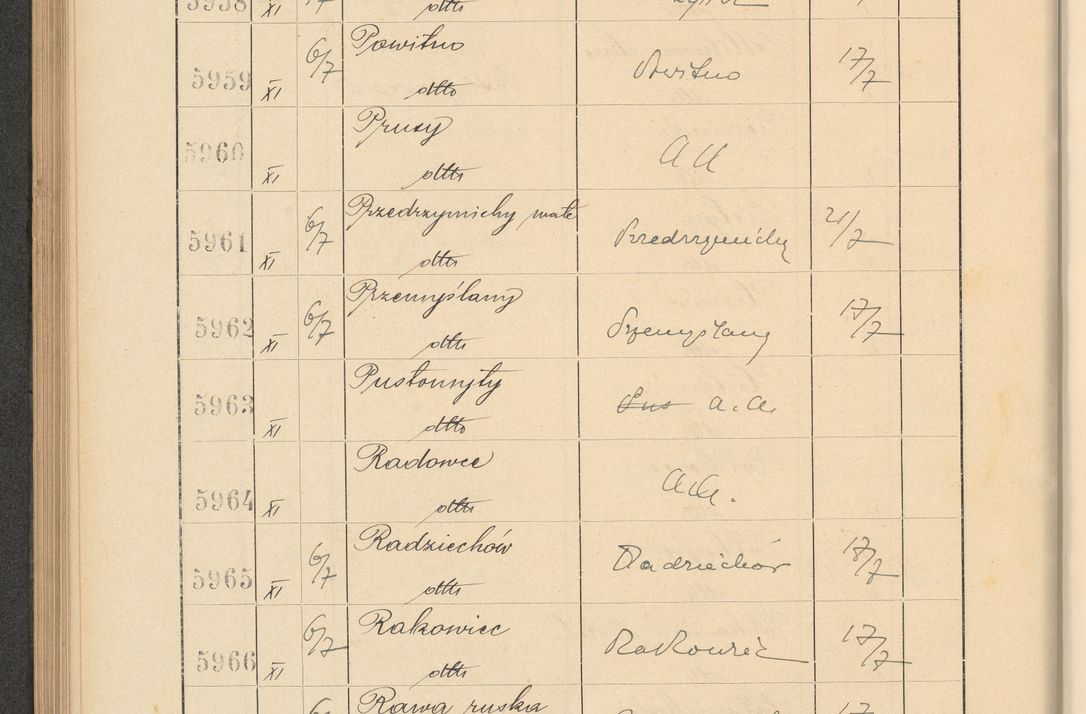 5958 XI dtto
5959 XI 6/7 Powitno dtto Powitno 17/7
5960 XI Prusy dtto a a
5961 XI 6/7 Przedrzymichy małe dtto Przedrzymichy 21/7
5962 XI 6/7 Przemyślany dtto Przemyślany 17/7
5963 XI Pustomyty dtto a. a.
5964 XI Radowce dtto a a.
5965 XI 6/7 Radziechów dtto Radziechów 18/7
5966 XI 6/7 Rakowiec dtto Rakowiec 17/7
Rawa ruska